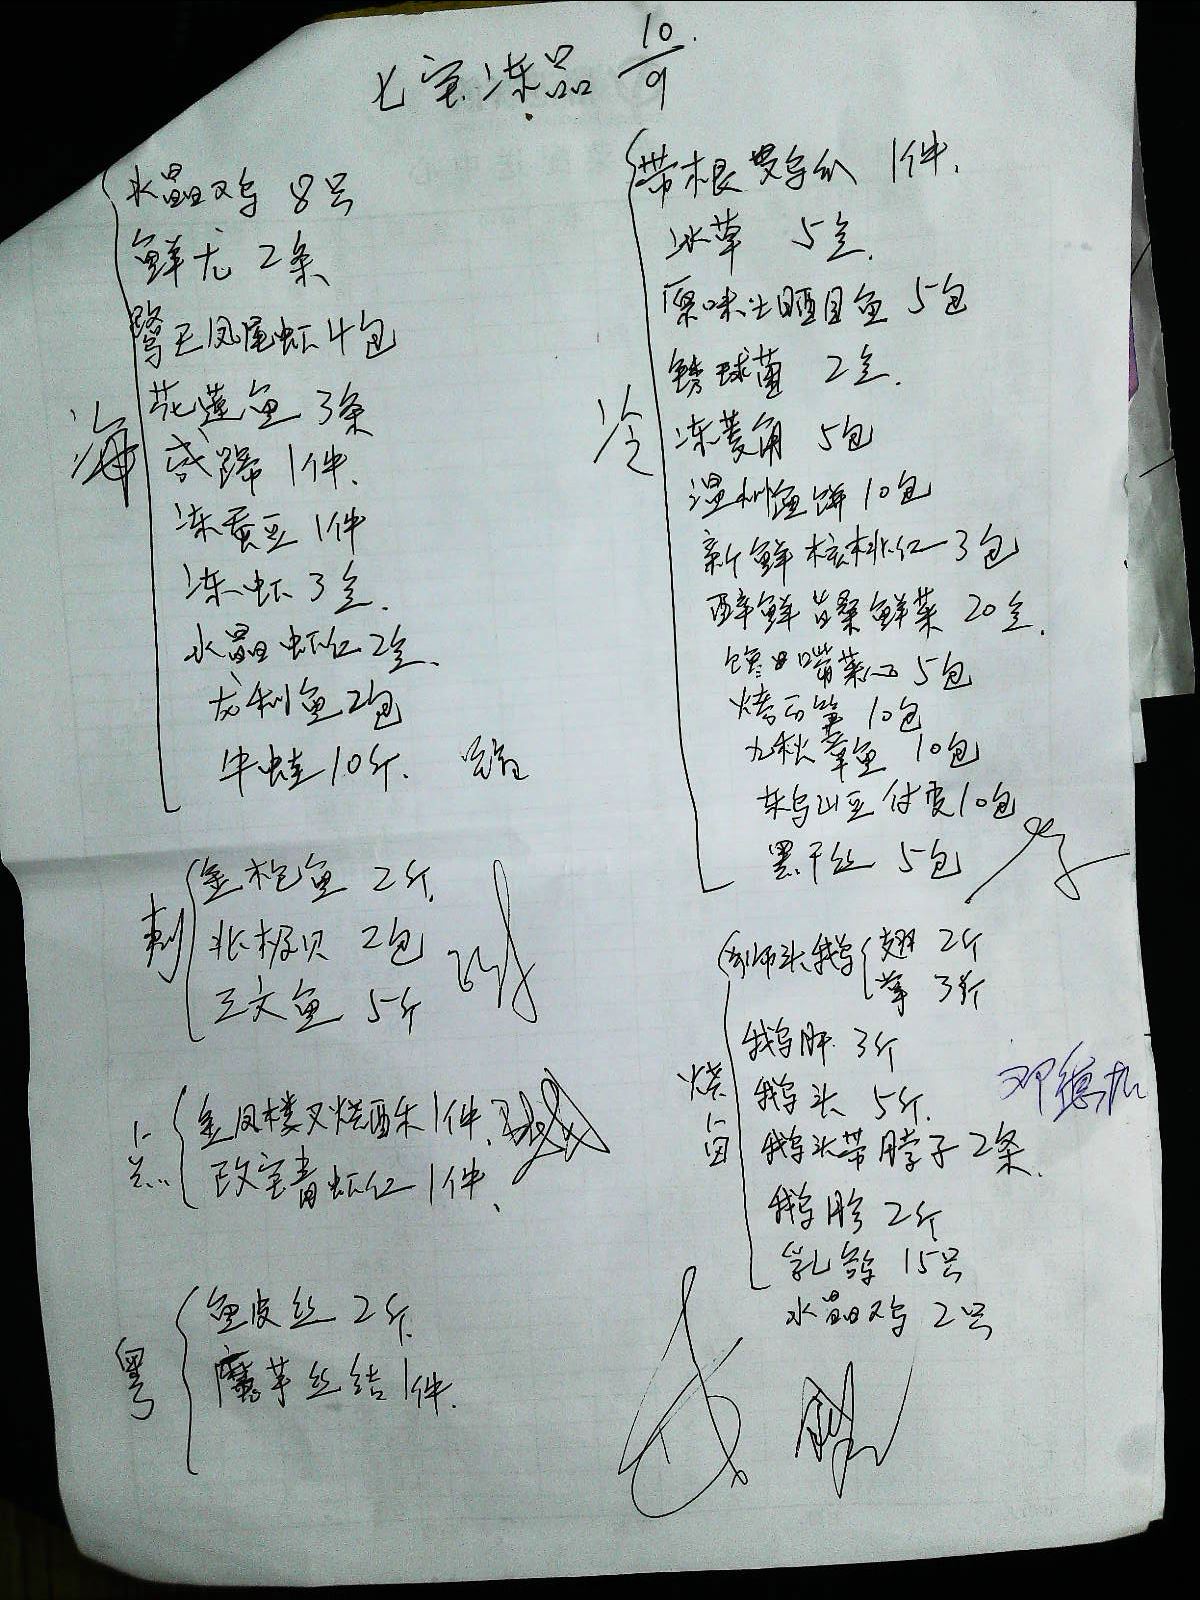 七宝冻品 10/9
海
水晶鸡 8只
鲜尤 2条
凤尾虾 4包
花莲鱼 3条
蹄 1件.
冻蚕豆 1件
冻虾 3盒.
水晶虾仁 2盒.
龙利鱼 2包
牛蛙 10斤.
刺
金枪鱼 2斤
北极贝 2包
三文鱼 5斤
点
金凤楼叉烧酥 1件.
青虾仁 1件.
粤
鱼皮丝 2斤.
魔芋丝结 1件.
冷
带根 1件.
冰草 5盒.
原味土晒目鱼 5包
绣球菌 2盒.
冻菱角 5包
温州鱼饼 10包
新鲜核桃仁 3包
20盒.
嘴菜心 5包
10包
章鱼 10包
10包
黑干丝 5包
烧卤
狮头鹅 翅 2斤
掌 3斤
鹅肝 3斤
鹅头 5斤.
鹅头带脖子 2条.
鹅胗 2斤
乳鸽 15只
水晶鸡 2只
邓德